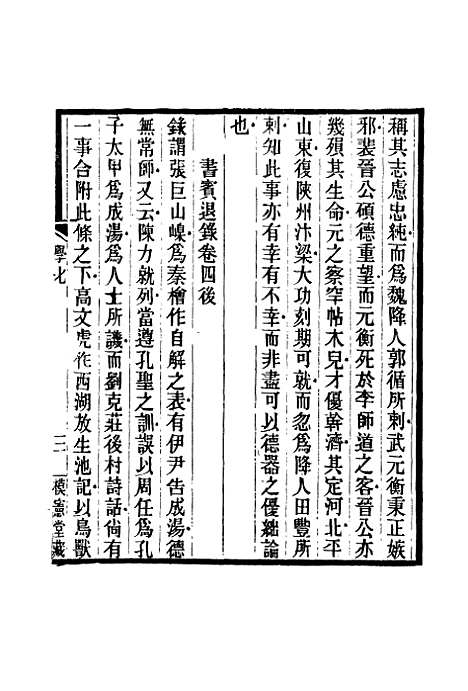 稱其志慮忠純而爲魏降人郭循所刺武元衡秉正嫉
邪裴晉公碩德重望而元衡死於李師道之客晉公亦
幾殞其生命元之察罕帖木兒才優幹濟其定河北平
山東復陝州汴梁大功刻期可就而忽爲降人田豐所
刺知此事亦有幸有不幸而非盡可以德器之優絀論
也
書賓退錄卷四後
錄謂張巨山嵲爲秦檜作自解之表有伊尹告成湯德
無常師又云陳力就列當遵孔聖之訓誤以周任爲孔
子太甲爲成湯爲人士所譏而劉克莊後村詩話尙有
一事合附此條之下高文虎作西湖放生池記以鳥獸
學七
三
模憲堂藏